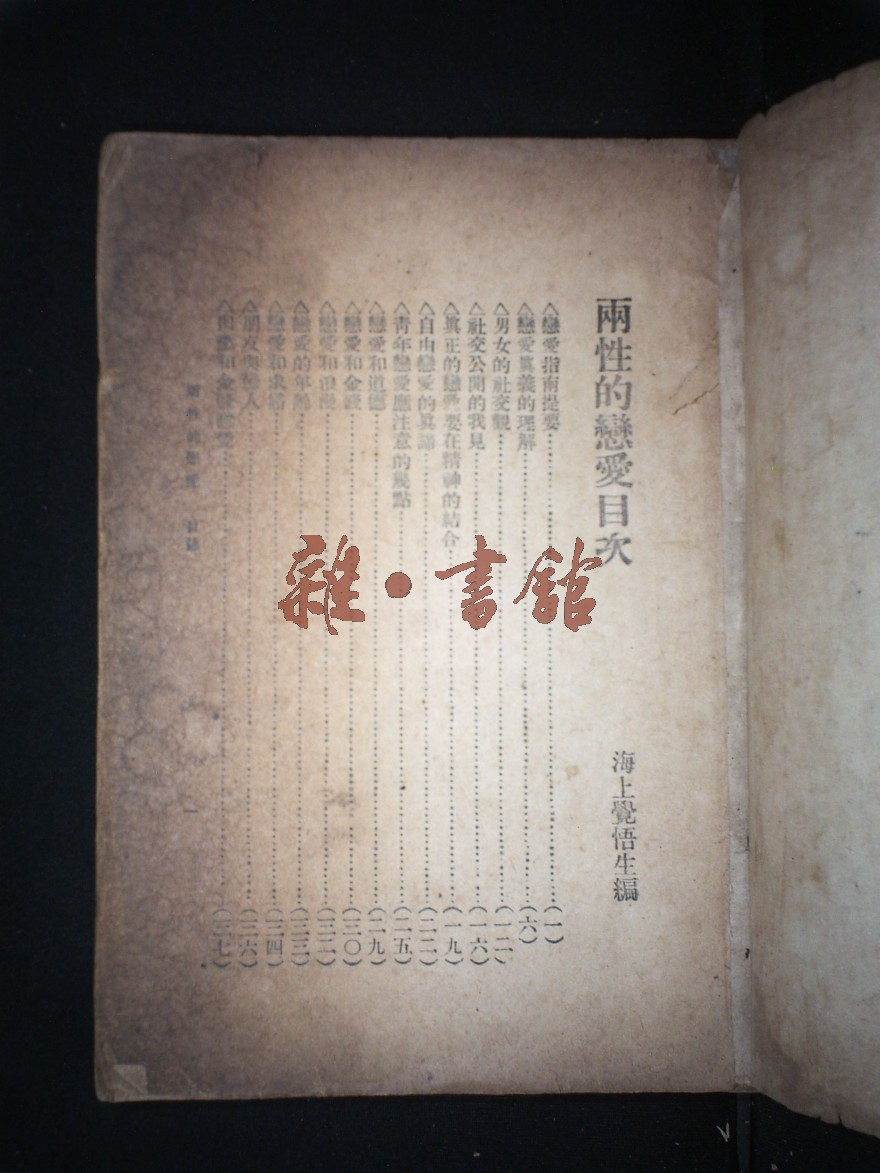 兩性的戀愛目次
海上覺悟生編
︿戀愛指南提要……(一)
︿戀愛眞義的理解……(六)
︿男女的社交觀……(一二)
︿社交公開的我見……(一六)
︿眞正的戀愛要在精神的結合……(一九)
︿自由戀愛的眞諦……(二二)
︿靑年戀愛應注意的幾點……(二五)
︿戀愛和道德……(二九)
︿戀愛和金錢……(三〇)
︿戀愛和浪漫……(三二)
︿戀愛的年齡……(三三)
︿戀愛和求婚……(三四)
︿朋友與戀人……(三六)
和金錢……(三七)
的戀愛 目錄 一
雜•書館